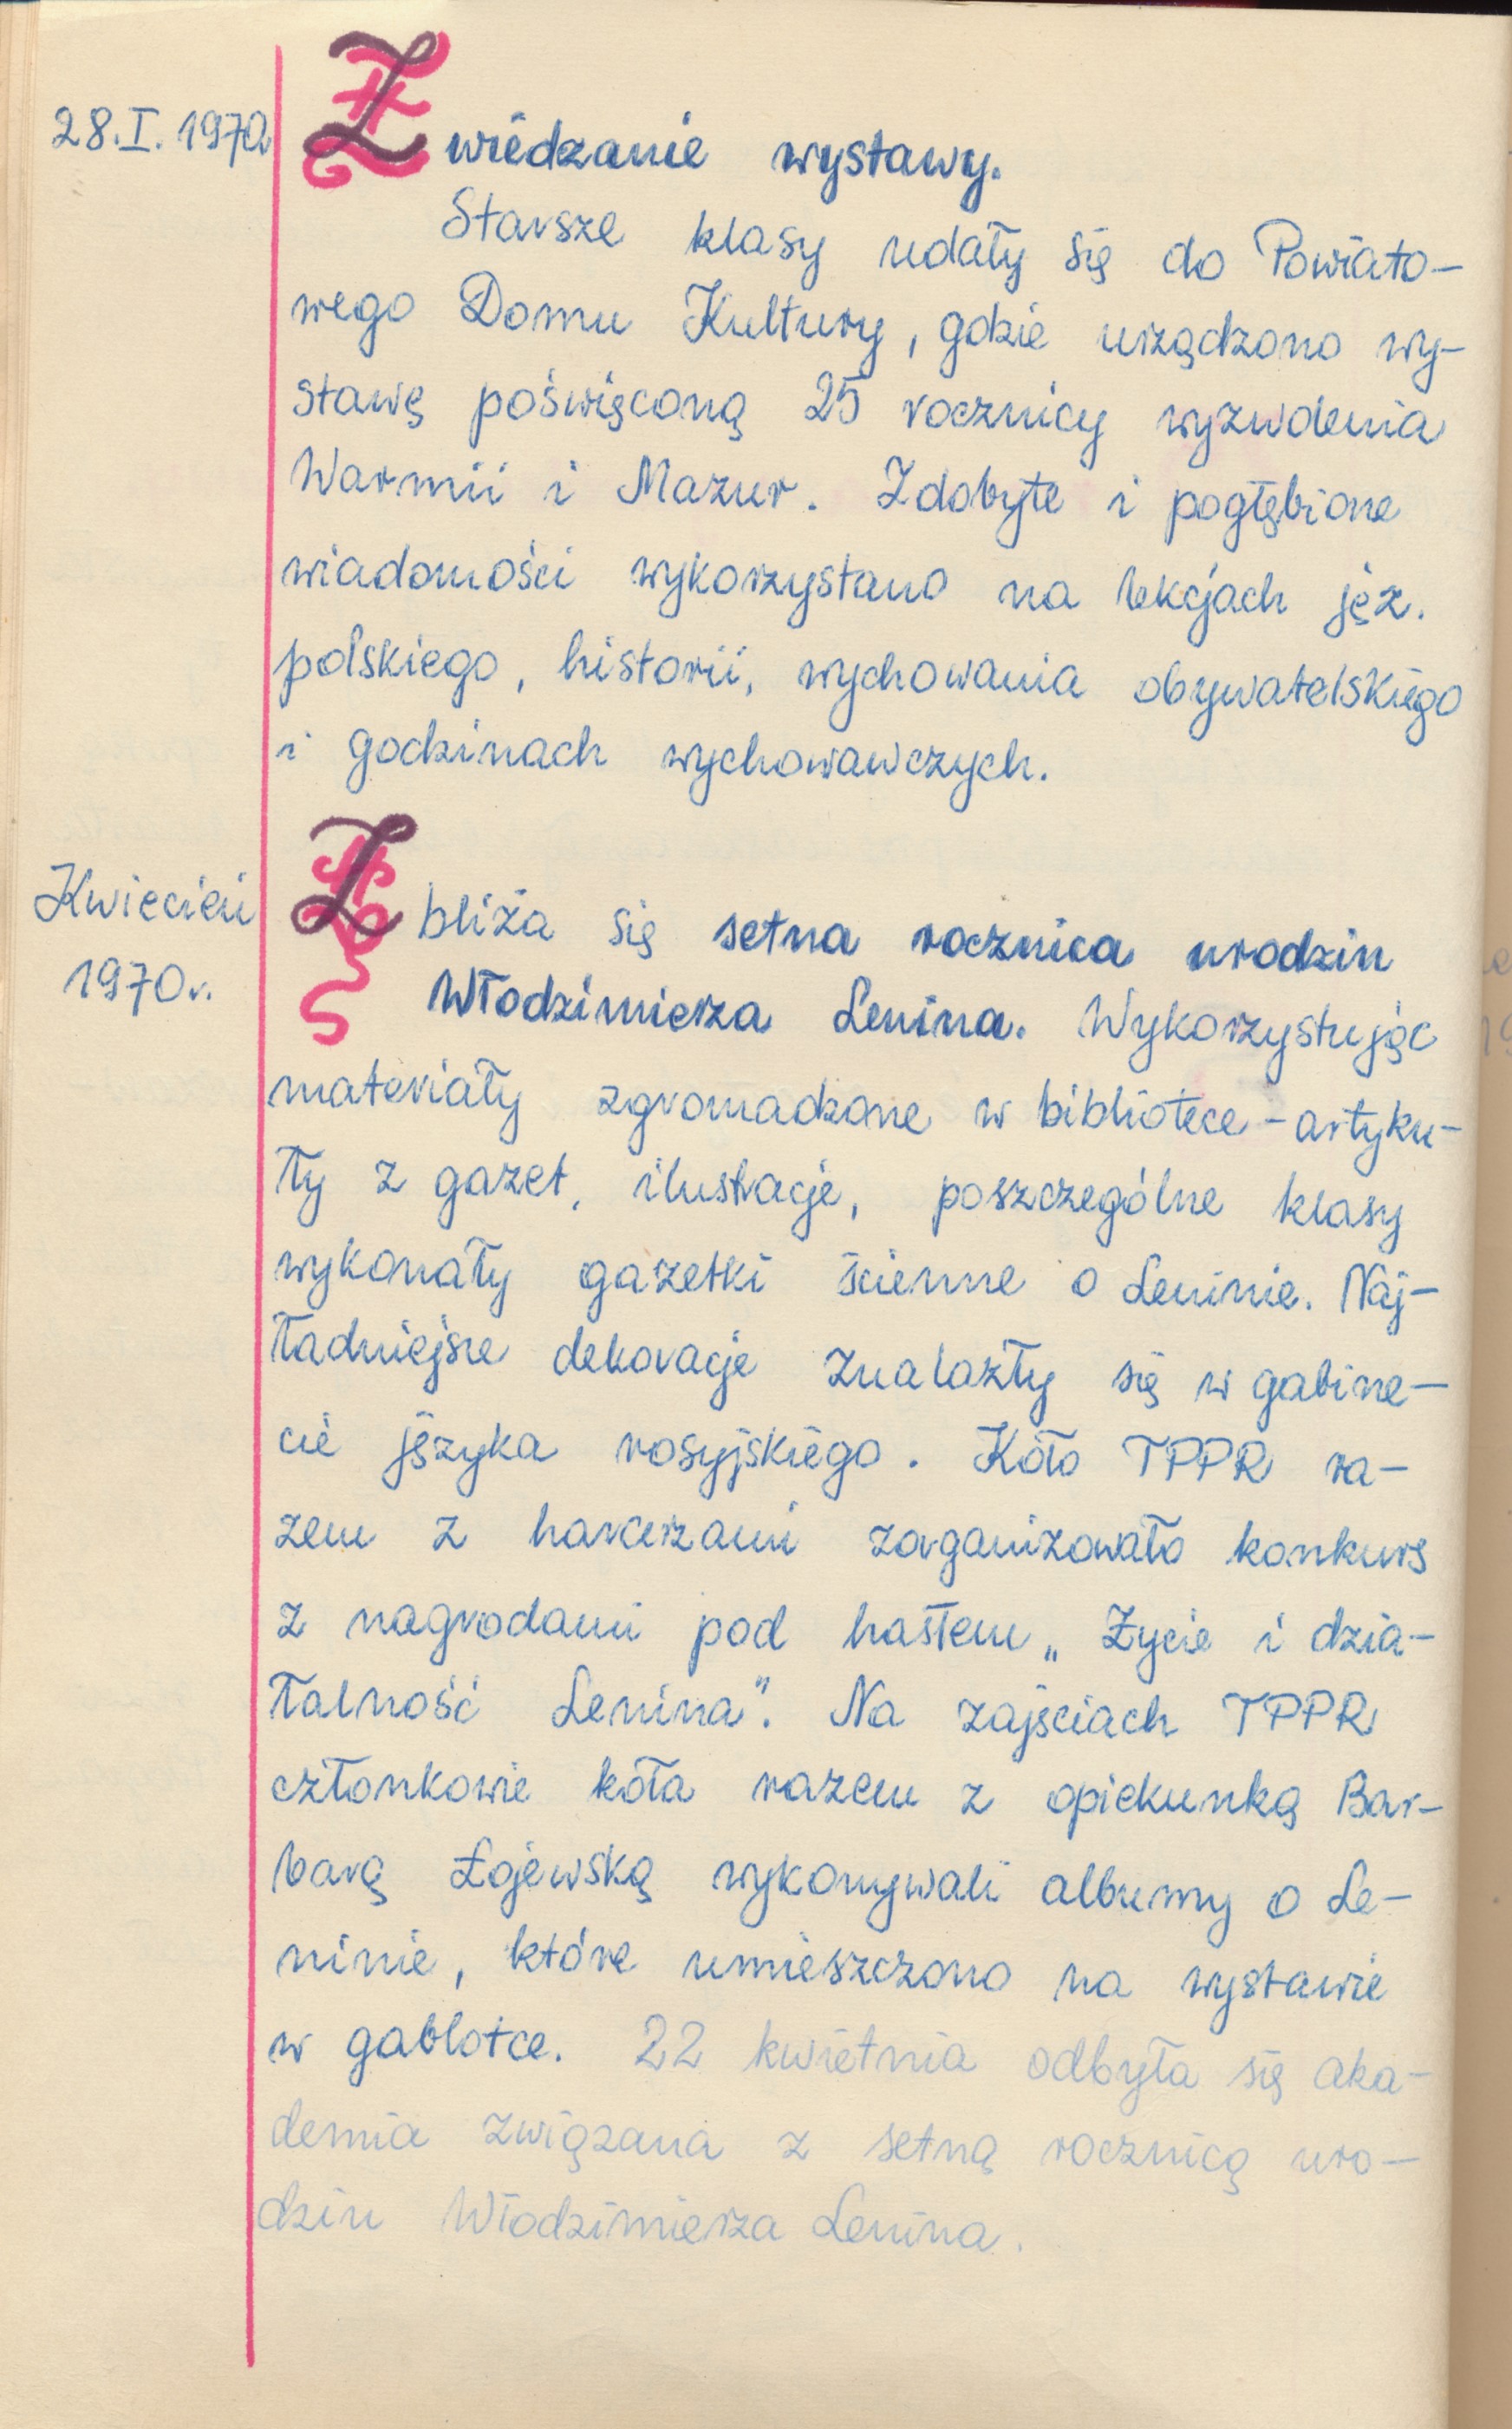 28.I.1970.
Zwiedzanie wystawy.
Starsze klasy udały się do Powiato-
wego Domu Kultury, gdzie urządzono wy-
stawę poświęconą 25 rocznicy wyzwolenia
Warmii i Mazur. Zdobyte i pogłębione
wiadomości wykorzystano na lekcjach jęz.
polskiego, historii, wychowania obywatelskiego
i godzinach wychowawczych.
Kwiecień
1970r.
Zbliża się setna rocznica urodzin
Włodzimierza Lenina. Wykorzystując
materiały zgromadzone w bibliotece - artyku-
ły z gazet, ilustracje, poszczególne klasy
wykonały gazetki ścienne o Leninie. Naj-
ładniejsze dekoracje znalazły się w gabine-
cie języka rosyjskiego. Koło TPPR ra-
zem z harcerzami zorganizowało konkurs
z nagrodami pod hasłem „Życie i dzia-
łalność Lenina". Na zajściach TPPR
członkowie koła razem z opiekunką Bar-
barą Łojewską wykonywali albumy o Le-
ninie, które umieszczono na wystawie
w gablotce. 22 kwietnia odbyła się aka-
demia związana z setną rocznicą uro-
dzin Włodzimierza Lenina.